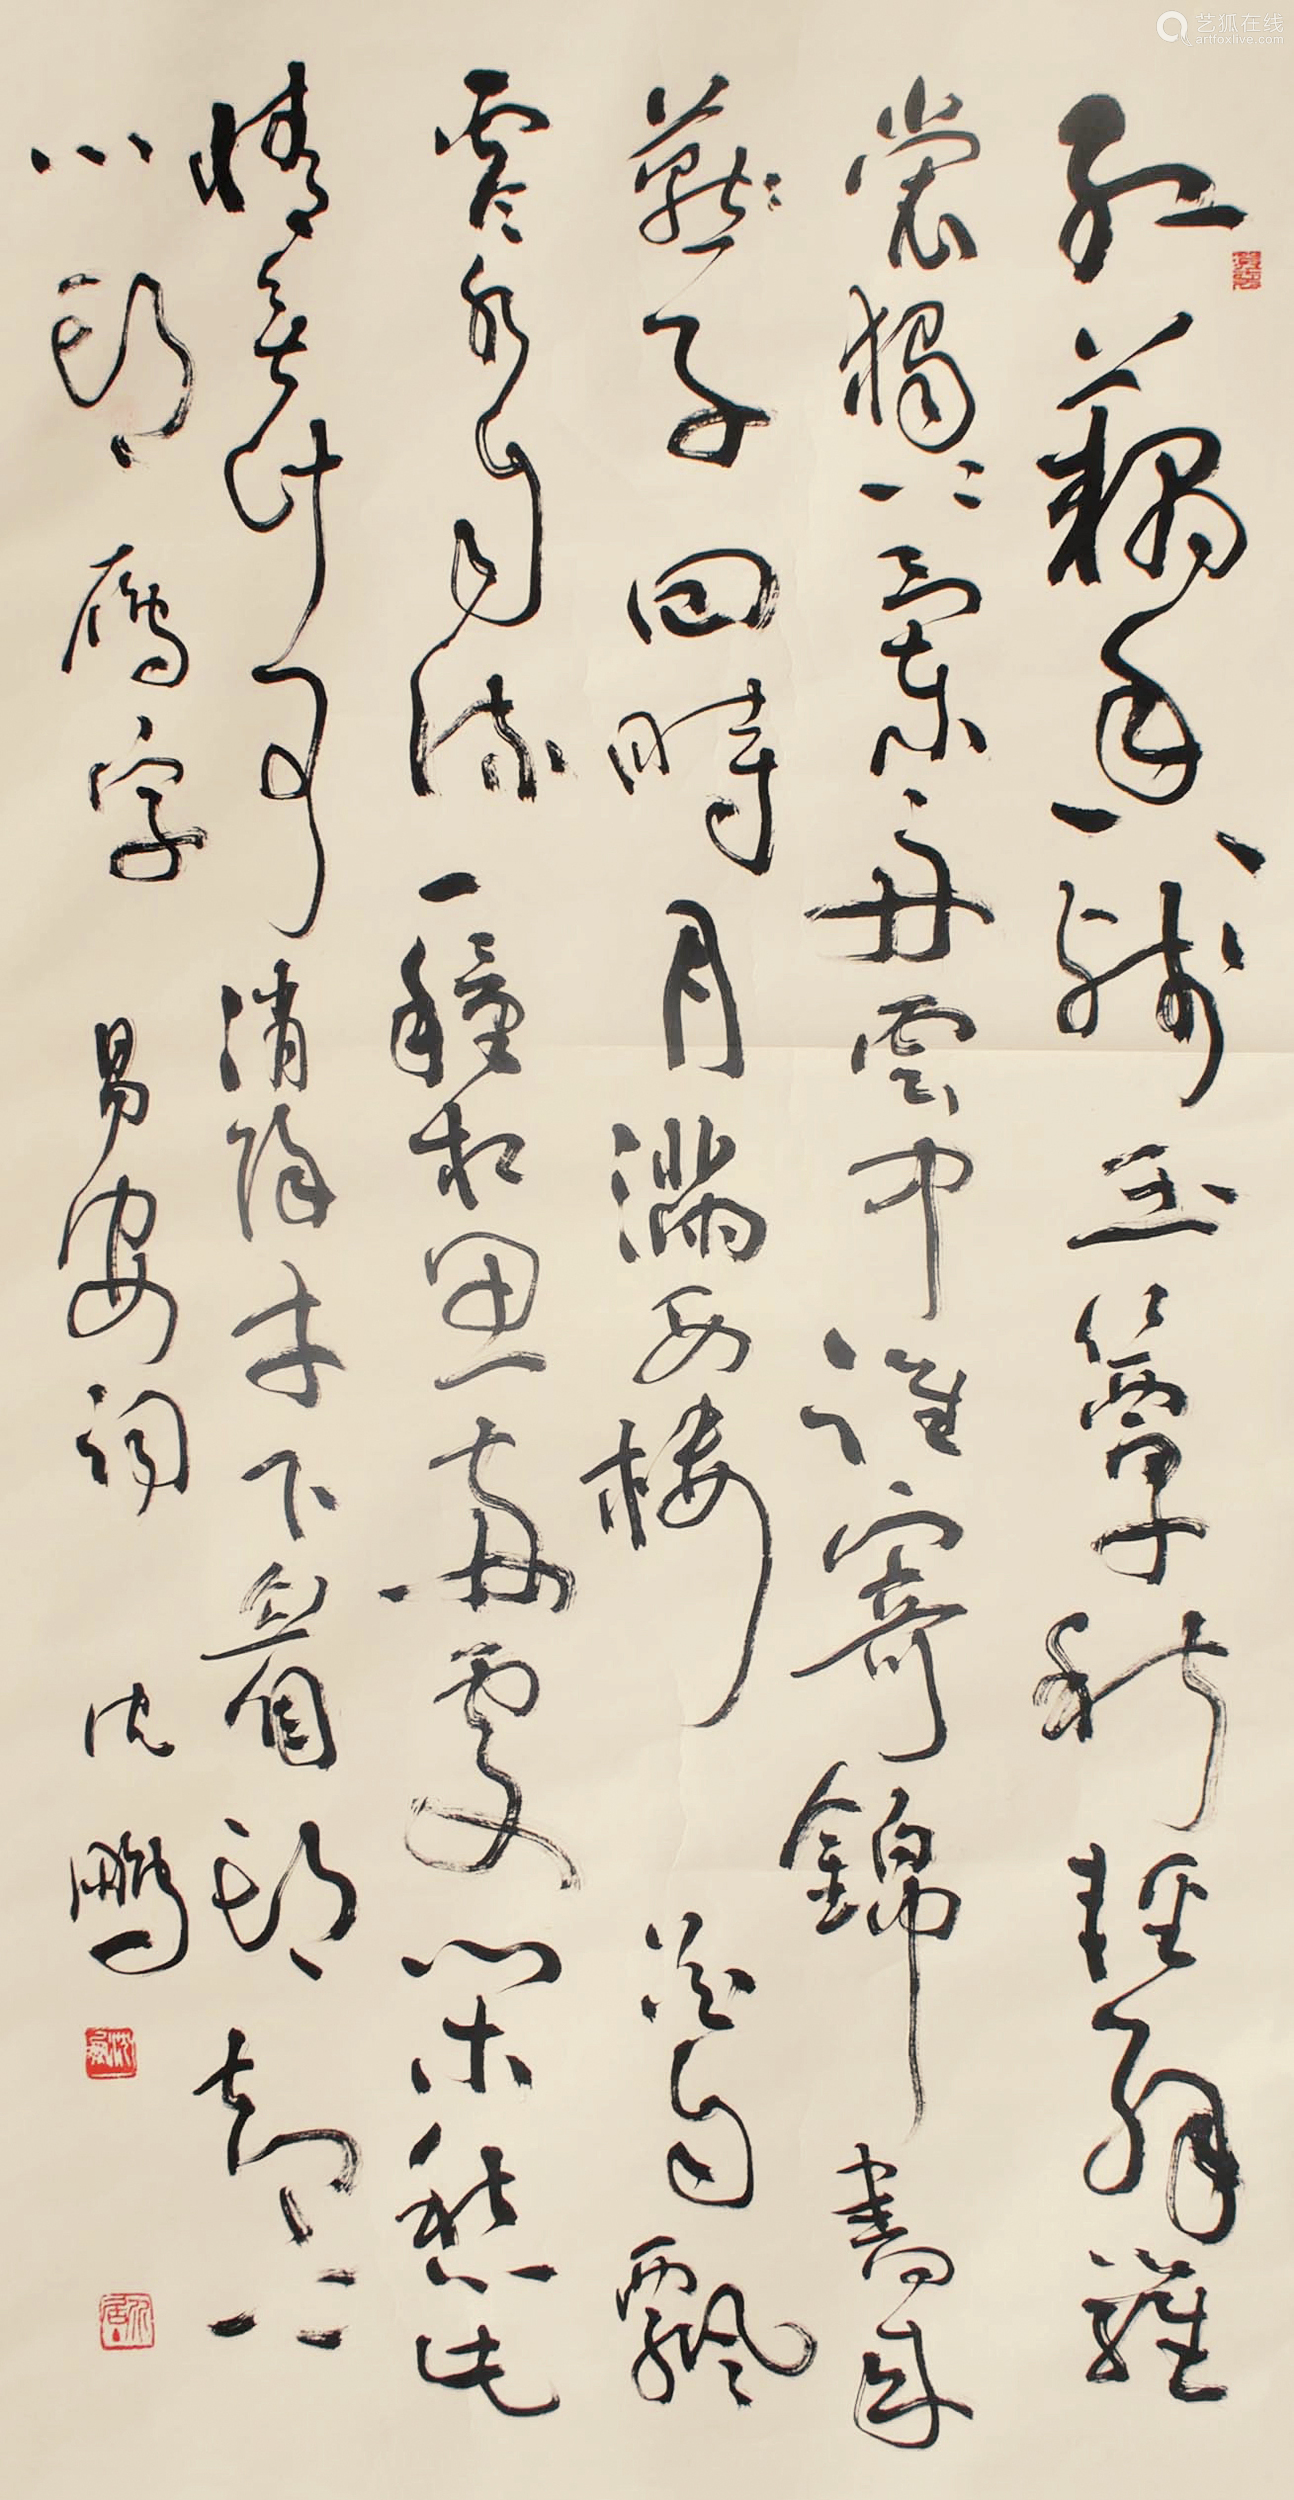 艺狐在线
artfoxlive.com
紅藕香殘玉簟秋輕解羅
裳獨上蘭舟雲中誰寄錦書來
燕子回時月滿西樓花自飄
零水自流一種相思兩處閑愁此
情無計可消除才下眉頭却上
心頭 雁字 易安詞 沈鵬